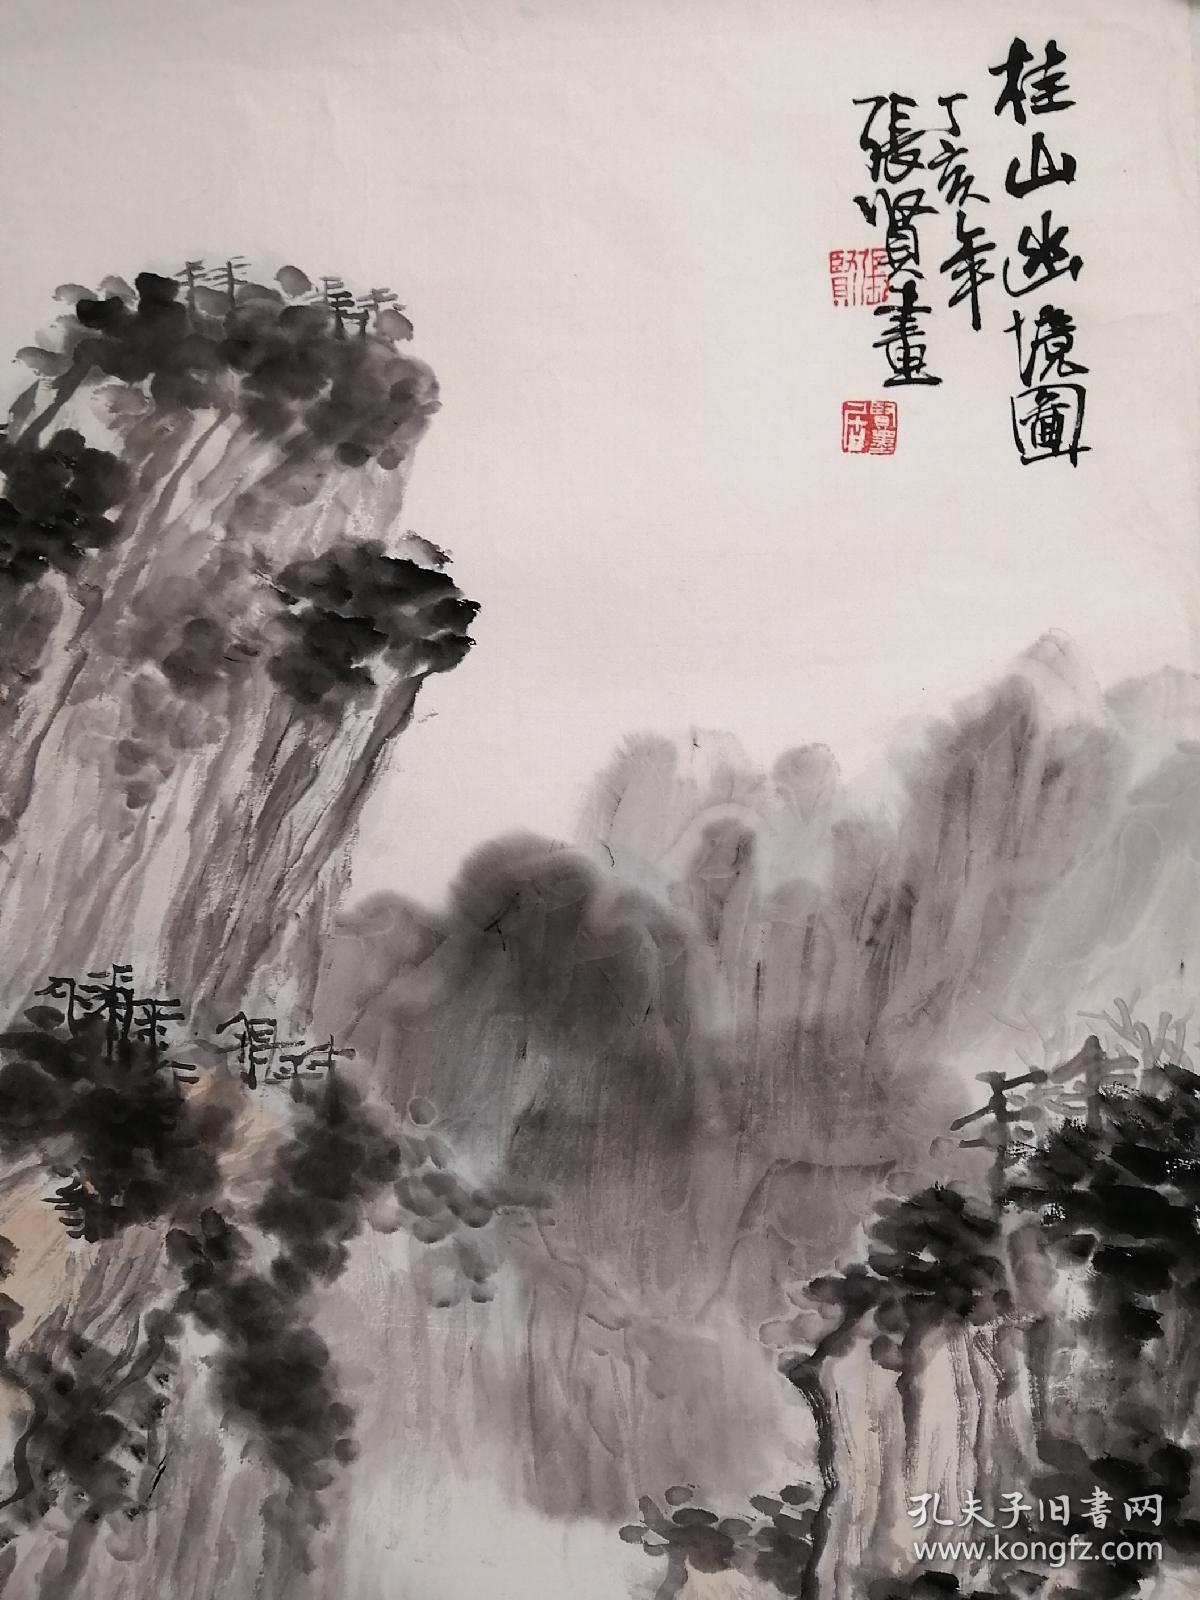 桂山幽境圖
丁亥年
張賢畫
張賢
孔夫子旧书网
www.kongfz.com